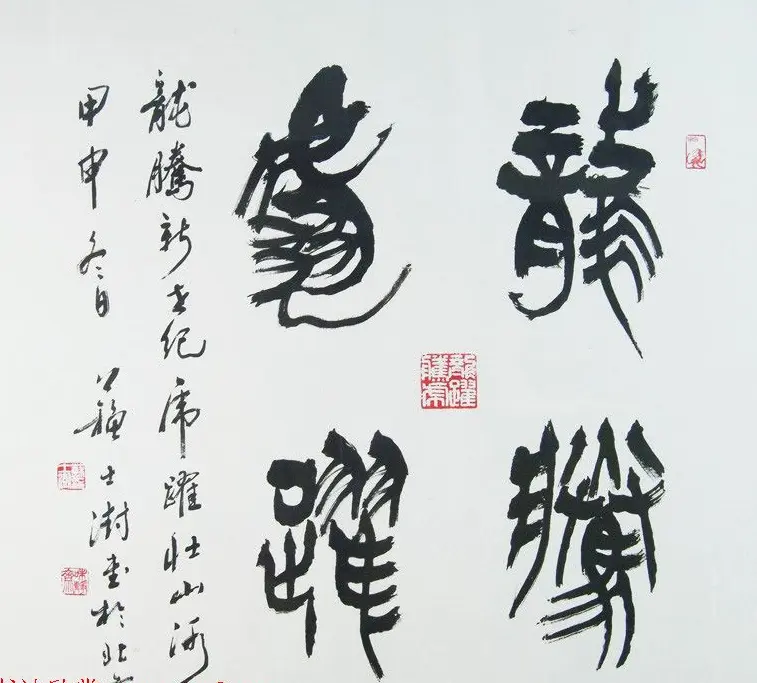 龍騰
虎躍
龍騰新世紀虎躍壯山河
甲申冬日蘇士澍書於北